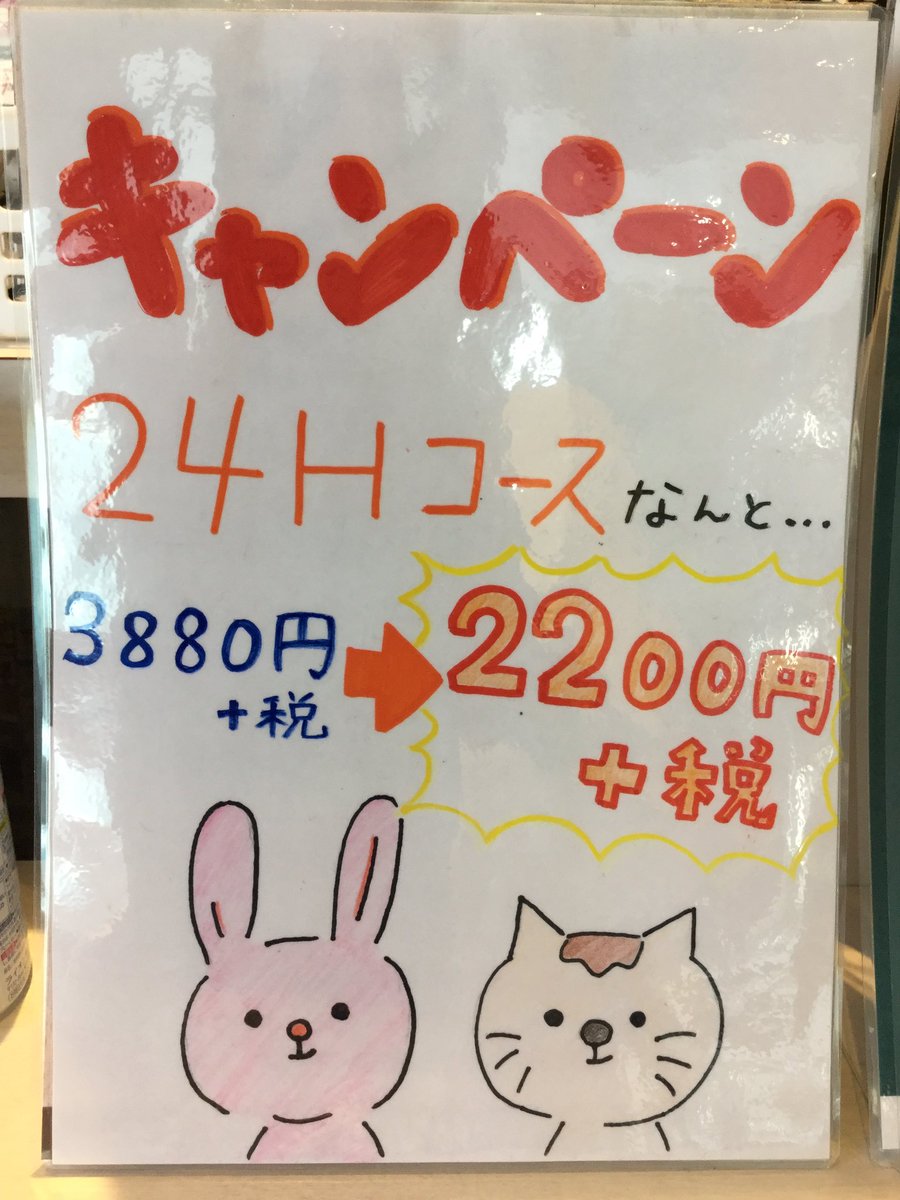 キャンペーン
24Hコース なんと...
3880円 2200円
+税 +税